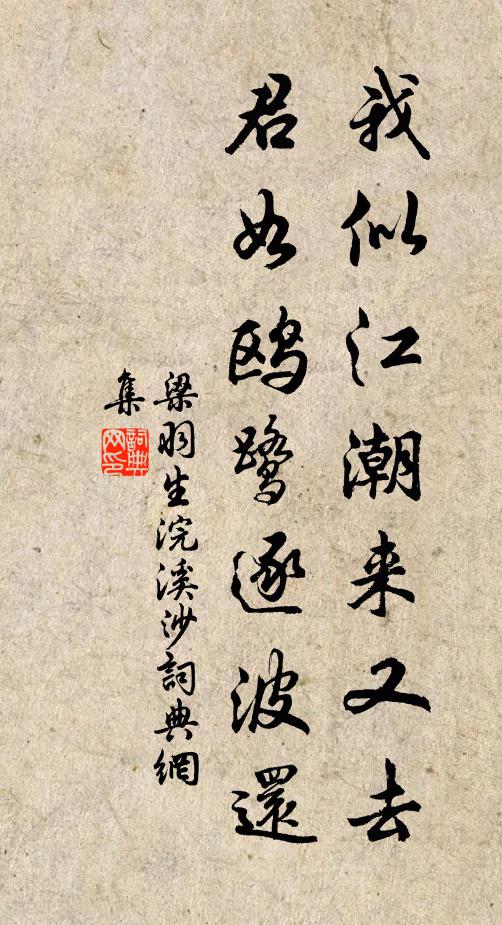 我似江潮来又去
君如鸥鹭逐波還
梁羽生浣溪沙詞典網
集
詞典
网印